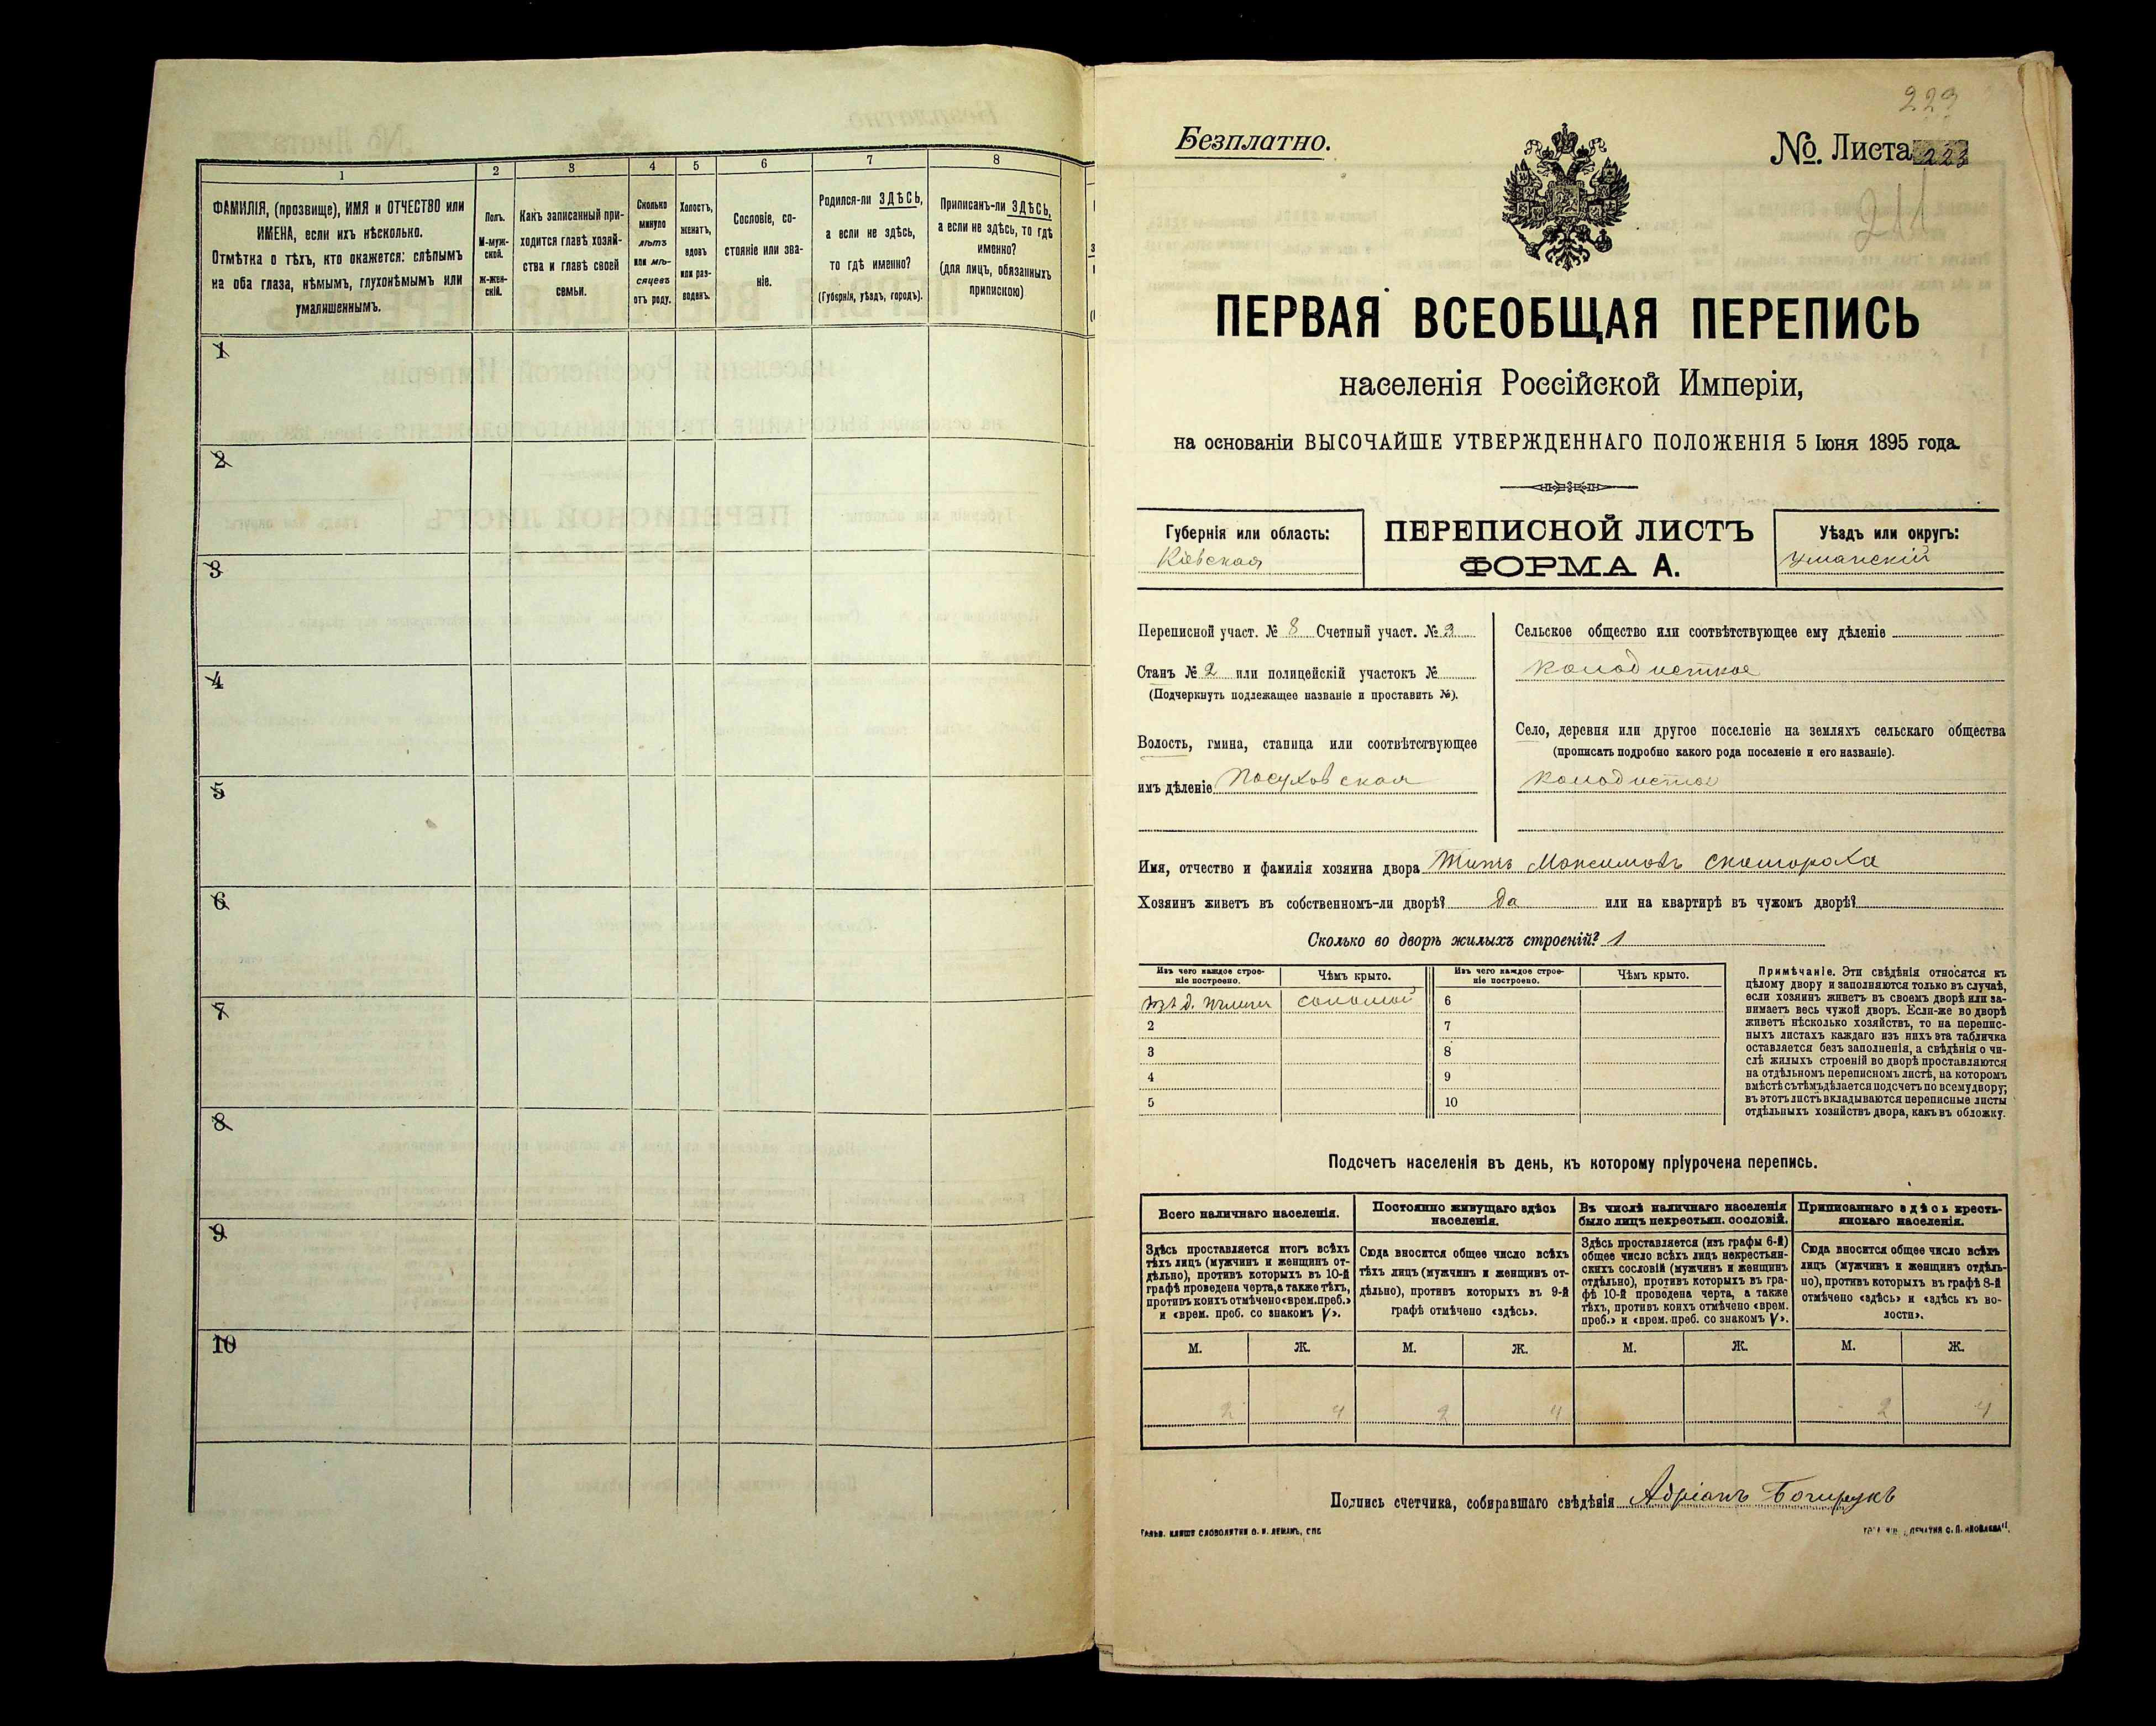 1
2
3
4
5
6
7
8
ФАМИЛІЯ, (прозвище), ИМЯ и ОТЧЕСТВО или
ИМЕНА, если ихъ нѣсколько.
Отмѣтка о тѣхъ, кто окажется: слѣпымъ
на оба глаза, нѣмымъ, глухонѣмымъ или
умалишеннымъ.
Полъ.
М-муж-
ской.
Ж-жен-
скій.
Какъ записанный при-
ходится главѣ хозяй-
ства и главѣ своей
семьи.
Сколько
минуло
лѣтъ
или мѣ-
сяцевъ
отъ роду.
Холостъ,
женатъ,
вдовъ
или раз-
веденъ.
Сословіе, со-
стояніе или зва-
ніе.
Родился-ли ЗДѢСЬ,
а если не здѣсь,
то гдѣ именно?
(Губернія, уѣздъ, городъ).
Приписанъ-ли ЗДѢСЬ,
а если не здѣсь, то гдѣ
именно?
(для лицъ, обязанныхъ
припискою)
1
2
3
4
5
6
7
8
9
10
223
Безплатно.
№. Листа 223
211
ПЕРВАЯ ВСЕОБЩАЯ ПЕРЕПИСЬ
населенія Россійской Имперіи,
на основаніи ВЫСОЧАЙШЕ УТВЕРЖДЕННАГО ПОЛОЖЕНІЯ 5 Іюня 1895 года.
Губернія или область:
Кіевская
ПЕРЕПИСНОЙ ЛИСТЪ
ФОРМА А.
Уѣздъ или округъ:
Уманскій
Переписной участ. № 8 Счетный участ. № 3
Станъ № 2 или полицейскій участокъ №
(Подчеркнуть подлежащее названіе и проставить №).
Волость, гмина, станица или соотвѣтствующее
имъ дѣленіе Посуховская
Сельское общество или соотвѣтствующее ему дѣленіе
Колодисткое
Село, деревня или другое поселеніе на земляхъ сельскаго общества
(прописать подробно какого рода поселеніе и его названіе).
Колодистое
Имя, отчество и фамилія хозяина двора Титъ Максимовъ Скомороха
Хозяинъ живетъ въ собственномъ-ли дворѣ? Да или на квартирѣ въ чужомъ дворѣ?
Сколько во дворѣ жилыхъ строеній? 1
Изъ чего каждое строе-
ніе построено.
Чѣмъ крыто.
Изъ чего каждое строе-
ніе построено.
Чѣмъ крыто.
изъ д. соломой 6
2 7
3 8
4 9
5 10
Примѣчаніе. Эти свѣдѣнія относятся къ
цѣлому двору и заполняются только въ случаѣ,
если хозяинъ живетъ въ своемъ дворѣ или за-
нимаетъ весь чужой дворъ. Если-же во дворѣ
живетъ нѣсколько хозяйствъ, то на перепис-
ныхъ листахъ каждаго изъ нихъ эта табличка
оставляется безъ заполненія, а свѣдѣнія о чи-
слѣ жилыхъ строеній во дворѣ проставляются
на отдѣльномъ переписномъ листѣ, на которомъ
вмѣстѣ съ тѣмъ дѣлается подсчетъ по всему двору;
въ этотъ листъ вкладываются переписные листы
отдѣльныхъ хозяйствъ двора, какъ въ обложку.
Подсчетъ населенія въ день, къ которому пріурочена перепись.
Всего наличнаго населенія.
Постоянно живущаго здѣсь
населенія.
Въ числѣ наличнаго населенія
было лицъ некрестьян. сословій.
Приписаннаго здѣсь кресть-
янскаго населенія.
Здѣсь проставляется итогъ всѣхъ
тѣхъ лицъ (мужчинъ и женщинъ от-
дѣльно), противъ которыхъ въ 10-й
графѣ проведена черта, а также тѣхъ,
противъ коихъ отмѣчено «врем. преб.»
и «врем. преб. со знакомъ V».
Сюда вносится общее число всѣхъ
тѣхъ лицъ (мужчинъ и женщинъ от-
дѣльно), противъ которыхъ въ 9-й
графѣ отмѣчено «здѣсь».
Здѣсь проставляется (изъ графы 6-й)
общее число всѣхъ лицъ некрестьян-
скихъ сословій (мужчинъ и женщинъ
отдѣльно), противъ которыхъ въ гра-
фѣ 10-й проведена черта, а также
тѣхъ, противъ коихъ отмѣчено «врем.
преб.» и «врем. преб. со знакомъ V».
Сюда вносится общее число всѣхъ
лицъ (мужчинъ и женщинъ отдѣль-
но), противъ которыхъ въ графѣ 8-й
отмѣчено «здѣсь» и «здѣсь къ во-
лости».
М. Ж. М. Ж. М. Ж. М. Ж.
2 4 2 4 2 4
Подпись счетчика, собиравшаго свѣдѣнія Адріанъ
КЛИШЕ СЛОВОЛИТНИ О. И. ЛЕМАНЪ, СПБ